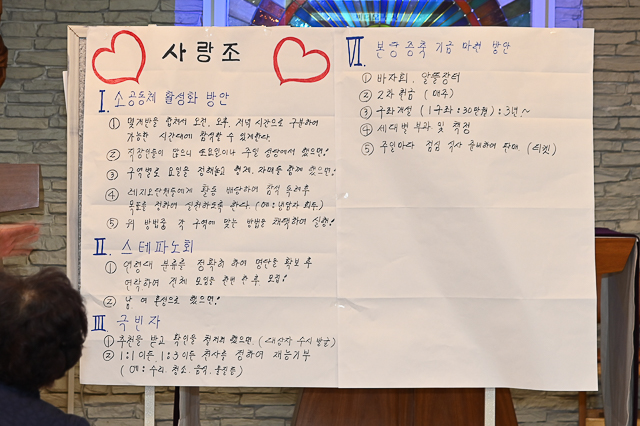 사랑조
Ⅰ. 소공동체 활성화 방안
① 몇개반을 합쳐서 오전, 오후, 저녁 시간으로 구분하여
가능한 시간대에 참석할 수 있게한다
② 직장인들이 많으니 토요일이나 주일 성당에서 했으면!
③ 구역별로 요일을 정해놓고 형제, 자매들 함께 했으면!
④ 레지오단원들에게 활동 배당하여 참석 독려후
목표를 정하여 실천하도록 한다 (예: 냉담자 회두)
⑤ 위 방법중 각 구역에 맞는 방법을 채택하여 실행!
Ⅱ. 스테파노회
① 연령대 분류를 정확히 하여 명단을 확보 후
연락하여 전체 모임을 한번 한 후 모집!
② 남 여 혼성으로 했으면!
Ⅲ 극빈자
① 추천을 받고 확인을 철저히 했으면. (대상자 수시 발굴)
② 1:1이든 1:3이든 천사를 정하여 재능기부
(예: 수리, 청소, 음식
Ⅵ 본당 증축 기금 마련 방안
① 바자회, 알뜰장터
② 2차 헌금 (매주)
③ 구좌개설 (1구좌: 30만원): 3년~
④ 세대별 부과 및 책정
⑤ 주일마다 점심 식사 준비하여 판매 (티켓)